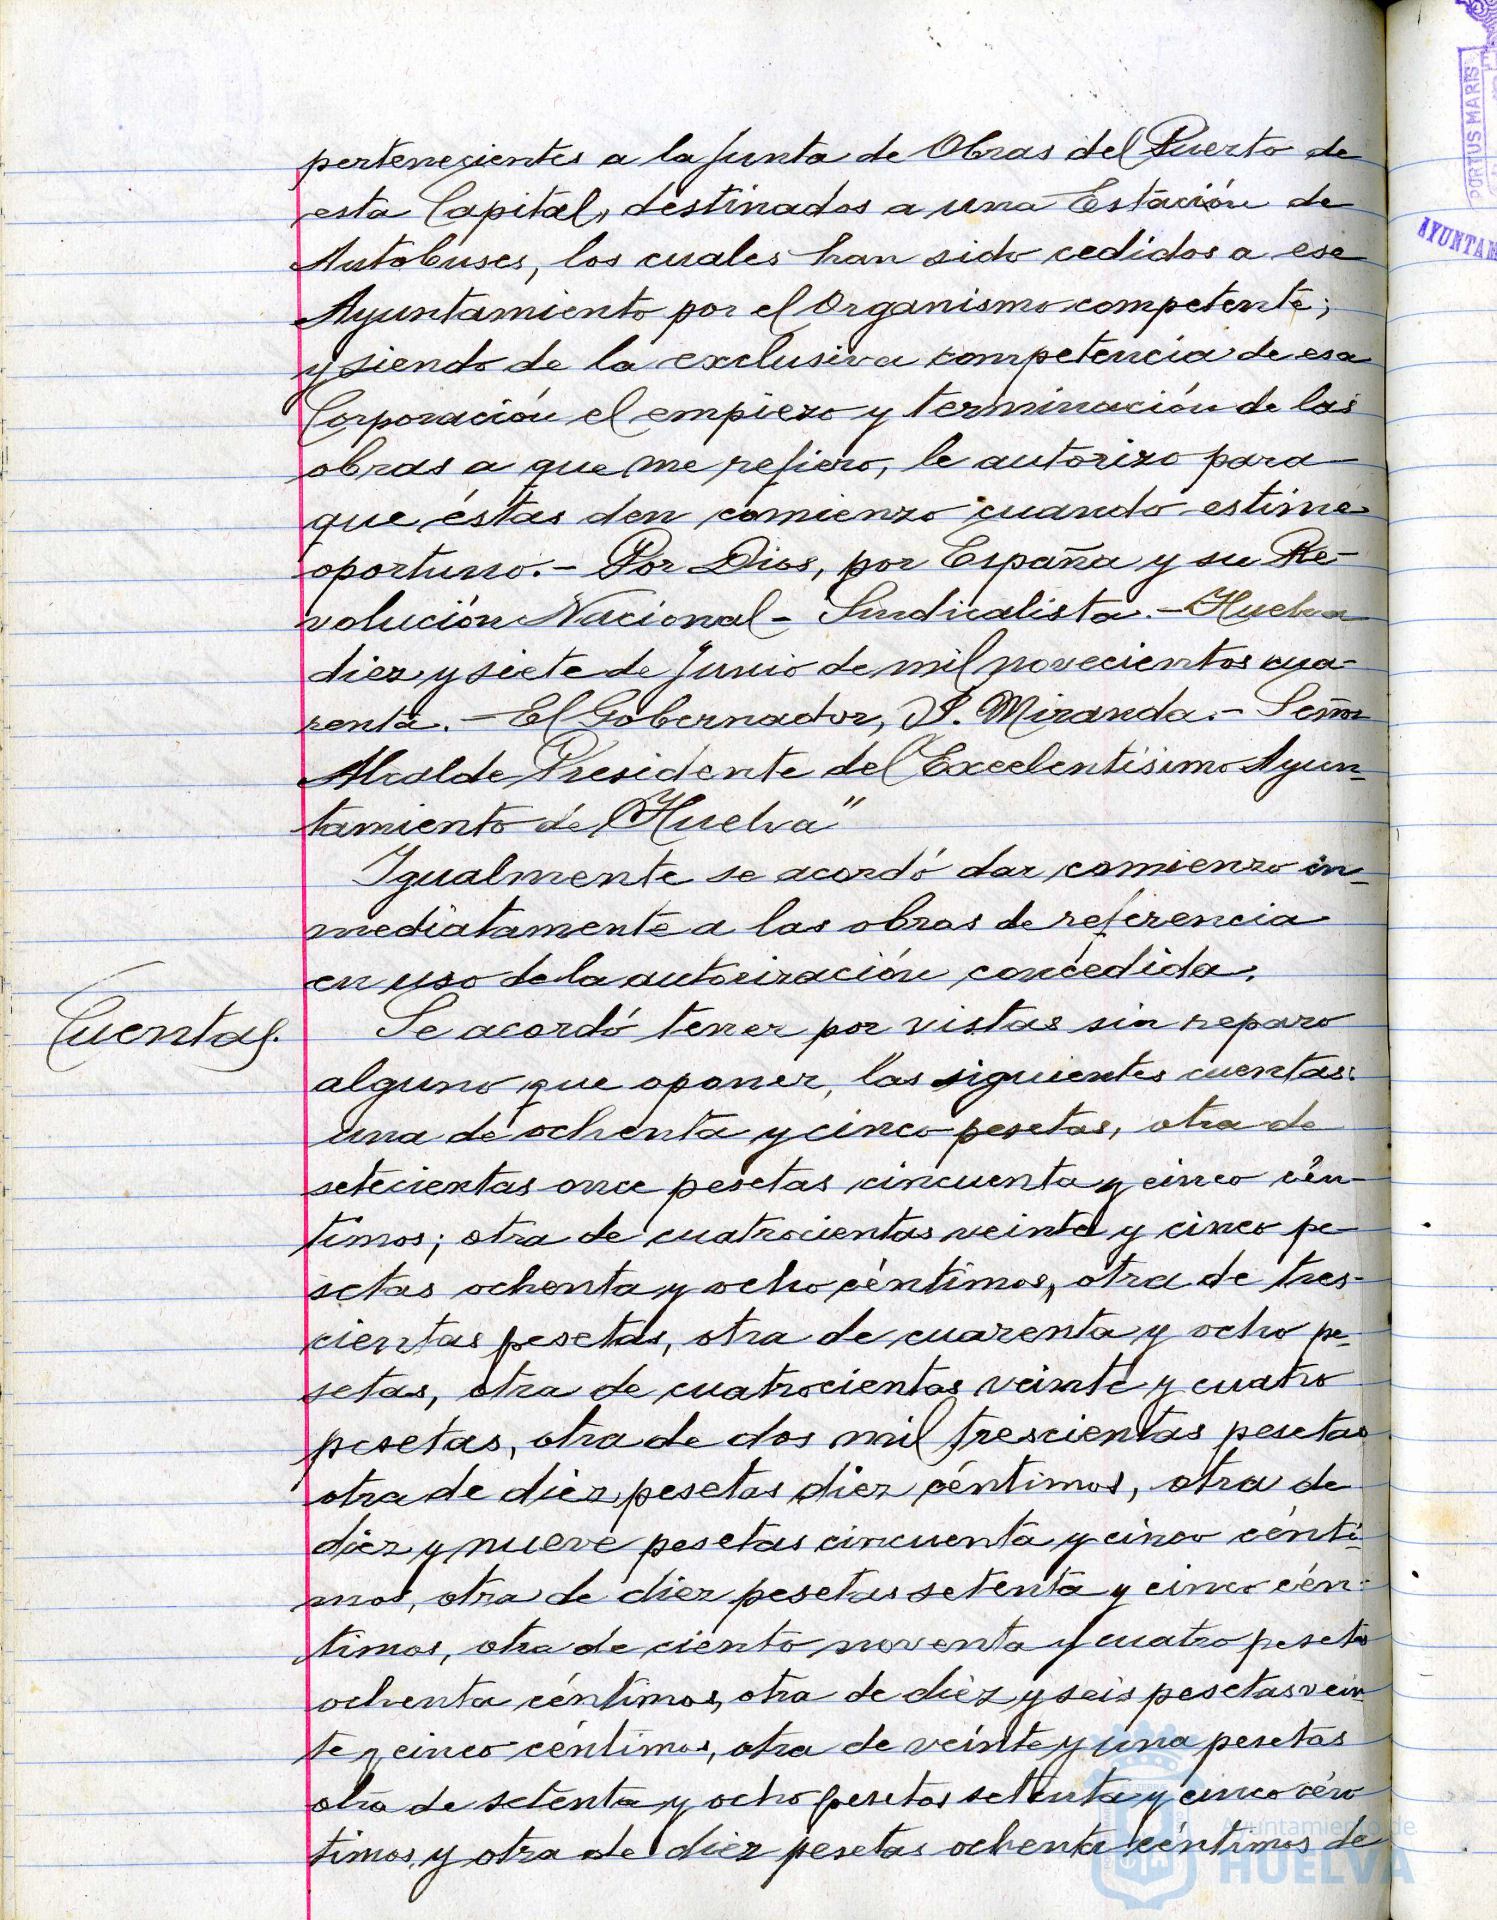 pertenecientes a la Junta de Obras del Puerto de
esta Capital, destinados a una Estación de
Autobuses, los cuales han sido cedidos a ese
Ayuntamiento por el Organismo competente;
y siendo de la exclusiva competencia de esa
Corporación el empiezo y terminación de las
obras a que me refiero, le autorizo para
que éstas den comienzo cuando estime
oportuno.- Por Dios, por España y su Re-
volución Nacional- Sindicalista.- Huelva
diez y siete de Junio de mil novecientos cua-
renta.- El Gobernador, J. Miranda.- Señor
Alcalde Presidente del Excelentísimo Ayun-
tamiento de Huelva"
Igualmente se acordó dar comienzo in-
mediatamente a las obras de referencia
en uso de la autorización concedida.
Cuentas.
Se acordó tener por vistas sin reparo
alguno que oponer, las siguientes cuentas:
una de ochenta y cinco pesetas, otra de
setecientas once pesetas cincuenta y cinco cén-
timos; otra de cuatrocientas veinte y cinco pe-
setas ochenta y ocho céntimos, otra de tres-
cientas pesetas, otra de cuarenta y ocho pe-
setas, otra de cuatrocientas veinte y cuatro
pesetas, otra de dos mil trescientas pesetas
otra de diez pesetas diez céntimos, otra de
diez y nueve pesetas cincuenta y cinco cénti-
mos, otra de diez pesetas setenta y cinco cén-
timos, otra de ciento noventa y cuatro pesetas
ochenta céntimos, otra de diez y seis pesetas vein-
te y cinco céntimos, otra de veinte y una pesetas
otra de setenta y ocho pesetas setenta y cinco cén
timos, y otra de diez pesetas ochenta céntimos de
PORTUS MARIS
AYUNTAM
Ayuntamiento de
HUELVA